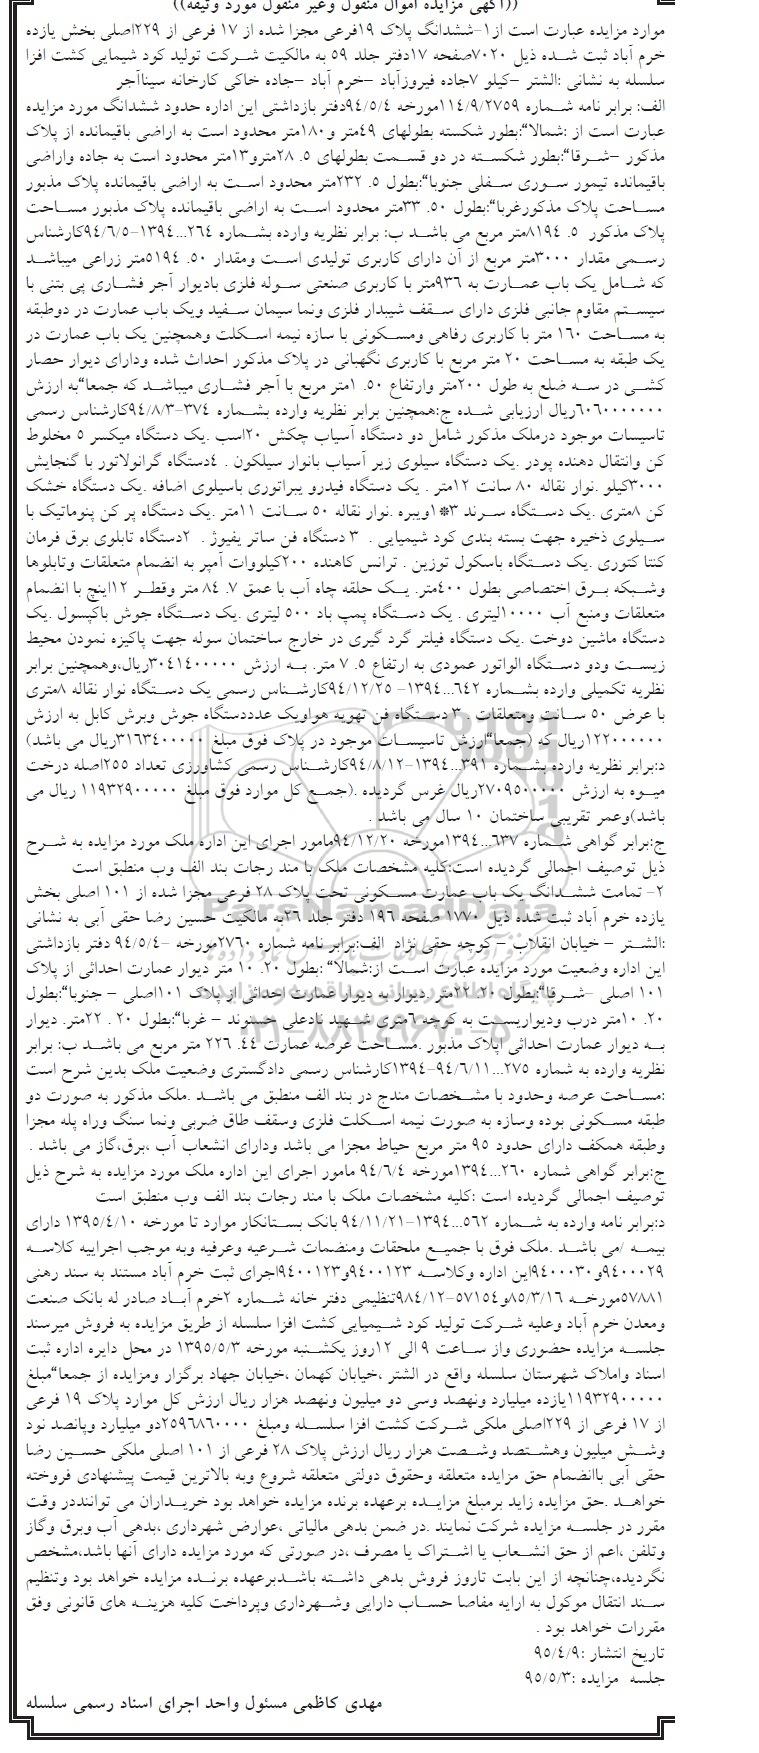 ((آگهی مزایده اموال منقول وغیر منقول مورد وثیقه))
موارد مزایده عبارت است از۱-ششدانگ پلاک ۱۹فرعی مجزا شده از ۱۷ فرعی از ۲۲۹اصلی بخش یازده
خرم آباد ثبت شده ذیل ۷۰۲۰صفحه ۱۷دفتر جلد ۵۹ به مالکیت شرکت تولید کود شیمایی کشت افزا
سلسله به نشانی :الشتر –کیلو ۷جاده فیروزآباد –خرم آباد –جاده خاکی کارخانه سیناآجر
الف: برابر نامه شماره ۱۱۴/۹/۲۷۵۹مورخه ۹۴/۵/۴دفتر بازداشتی این اداره حدود ششدانگ مورد مزایده
عبارت است از :شمالا“:بطور شکسته بطولهای ۴۹متر و۱۸۰متر محدود است به اراضی باقیمانده از پلاک
مذکور –شرقا“:بطور شکسته در دو قسمت بطولهای ۵. ۲۸مترو۱۳متر محدود است به جاده واراضی
باقیمانده تیمور سوری سفلی جنوبا“:بطول ۵. ۲۳۲متر محدود است به اراضی باقیمانده پلاک مذبور
مساحت پلاک مذکورغربا“:بطول ۵۰. ۳۳متر محدود است به اراضی باقیمانده پلاک مذبور مساحت
پلاک مذکور ۵. ۸۱۹۴متر مربع می باشد ب: برابر نظریه وارده بشماره ۲۶۴...۱۳۹۴-۹۴/۶/۵کارشناس
رسمی مقدار ۳۰۰۰متر مربع از آن دارای کاربری تولیدی است ومقدار ۵۰. ۵۱۹۴متر زراعی میباشد
که شامل یک باب عمارت به ۹۳۶متر با کاربری صنعتی سوله فلزی بادیوار آجر فشاری پی بتنی با
سیستم مقاوم جانبی فلزی دارای سقف شیبدار فلزی ونما سیمان سفید ویک باب عمارت در دوطبقه
به مساحت ۱۶۰ متر با کاربری رفاهی ومسکونی با سازه نیمه اسکلت وهمچنین یک باب عمارت در
یک طبقه به مساحت ۲۰ متر مربع با کاربری نگهبانی در پلاک مذکور احداث شده ودارای دیوار حصار
کشی در سه ضلع به طول ۲۰۰متر وارتفاع ۵۰. ۱متر مربع با آجر فشاری میباشد که جمعا“به ارزش
۶۰۶۰۰۰۰۰۰۰ریال ارزیابی شده ج:همچنین برابر نظریه وارده بشماره ۳۷۴-۹۴/۸/۳کارشناس رسمی
تاسیسات موجود درملک مذکور شامل دو دستگاه آسیاب چکش ۲۰اسب .یک دستگاه میکسر ۵ مخلوط
کن وانتقال دهنده پودر .یک دستگاه سیلوی زیر آسیاب بانوار سیلکون . ۴دستگاه گرانولاتور با گنجایش
۳۰۰۰کیلو .نوار نقاله ۸۰ سانت ۱۲متر . یک دستگاه فیدرو یبراتوری باسیلوی اضافه .یک دستگاه خشک
کن ۸متری .یک دستگاه سرند ۳*۱ویبره .نوار نقاله ۵۰ سانت ۱۱متر .یک دستگاه پر کن پنوماتیک با
سیلوی ذخیره جهت بسته بندی کود شیمیایی . ۳ دستگاه فن ساتر یفیوژ . ۲دستگاه تابلوی برق فرمان
کنتا کتوری .یک دستگاه باسکول توزین . ترانس کاهنده ۲۰۰کیلووات آمپر به انضمام متعلقات وتابلوها
وشبکه برق اختصاصی بطول ۴۰۰متر. یک حلقه چاه آب با عمق ۷. ۸۴ متر وقطر ۱۲اینچ با انضمام
متعلقات ومنبع آب ۱۰۰۰۰لیتری . یک دستگاه پمپ باد ۵۰۰ لیتری .یک دستگاه جوش باکپسول .یک
دستگاه ماشین دوخت .یک دستگاه فیلتر گرد گیری در خارج ساختمان سوله جهت پاکیزه نمودن محیط
زیست ودو دستگاه الواتور عمودی به ارتفاع ۵. ۷ متر. به ارزش ۳۰۴۱۴۰۰۰۰۰ریال،وهمچنین برابر
نظریه تکمیلی وارده بشماره ۶۴۲...۱۳۹۴- ۹۴/۱۲/۲۵کارشناس رسمی یک دستگاه نوار نقاله ۸متری
با عرض ۵۰ سانت ومتعلقات ۳۰ دستگاه فن تهویه هواویک عدددستگاه جوش وبرش کابل به ارزش
۱۲۲۰۰۰۰۰۰ریال که (جمعا“ارزش تاسیسات موجود در پلاک فوق مبلغ ۳۱۶۳۴۰۰۰۰۰ریال می باشد)
د:برابر نظریه وارده بشماره ۳۹۱...۱۳۹۴-۹۴/۸/۱۲کارشناس رسمی کشاورزی تعداد ۲۵۵اصله درخت
میوه به ارزش ۲۷۰۹۵۰۰۰۰۰ریال غرس گردیده .(جمع کل موارد فوق مبلغ ۱۱۹۳۲۹۰۰۰۰۰ ریال می
باشد)وعمر تقریبی ساختمان ۱۰ سال می باشد .
ج:برابر گواهی شماره ۶۳۷...۱۳۹۴مورخه ۹۴/۱۲/۲۰مامور اجرای این اداره ملک مورد مزایده به شرح
ذیل توصیف اجمالی گردیده است:کلیه مشخصات ملک با مند رجات بند الف وب منطبق است
۲- تمامت ششدانگ یک باب عمارت مسکونی تحت پلاک ۲۸ فرعی مجزا شده از ۱۰۱ اصلی بخش
یازده خرم آباد ثبت شده ذیل ۱۷۷۰ صفحه ۱۹۶ دفتر جلد ۲۶به مالکیت حسین رضا حقی آبی به نشانی
:الشتر – خیابان انقلاب – کوچه حقی نژاد الف:برابر نامه شماره ۲۷۶۰مورخه –۹۴/۵/۴ دفتر بازداشتی
این اداره وضعیت مورد مزایده عبارت است از:شمالا“ :بطول ۲۰. ۱۰ متر دیوار عمارت احداثی از پلاک
۱۰۱ اصلی –شرقا“:بطول ۲۰. ۲۲متر دیوار به دیوار عمارت احداثی از پلاک ۱۰۱اصلی – جنوبا“:بطول
۲۰. ۱۰متر درب ودیواریست به کوچه ۶متری شهید نادعلی حسنوند – غربا“:بطول ۲۰ . ۲۲متر. دیوار
به دیوار عمارت احداثی ازپلاک مذبور .مساحت عرصه عمارت ۴۴. ۲۲۶ متر مربع می باشد ب: برابر
نظریه وارده به شماره ۲۷۵...۹۴/۶/۱۱-۱۳۹۴کارشناس رسمی دادگستری وضعیت ملک بدین شرح است
:مساحت عرصه وحدود با مشخصات مندج در بند الف منطبق می باشد .ملک مذکور به صورت دو
طبقه مسکونی بوده وسازه به صورت نیمه اسکلت فلزی وسقف طاق ضربی ونما سنگ وراه پله مجزا
وطبقه همکف دارای حدود ۹۵ متر مربع حیاط مجزا می باشد ودارای انشعاب آب ،برق،گاز می باشد .
ج:برابر گواهی شماره ۲۶۰...۱۳۹۴مورخه ۹۴/۶/۴ مامور اجرای این اداره ملک مورد مزایده به شرح ذیل
توصیف اجمالی گردیده است :کلیه مشخصات ملک با مند رجات بند الف وب منطبق است
د:برابر نامه وارده به شماره ۵۶۲...۱۳۹۴-۹۴/۱۱/۲۱ بانک بستانکار موارد تا مورخه ۱۳۹۵/۴/۱۰ دارای
بیمه /می باشد .ملک فوق با جمیع ملحقات ومنضمات شرعیه وعرفیه وبه موجب اجراییه کلاسه
۹۴۰۰۰۲۹و۹۴۰۰۰۳۰این اداره وکلاسه ۹۴۰۰۱۲۳و۹۴۰۰۱۲۳اجرای ثبت خرم آباد مستند به سند رهنی
۵۷۸۸۱مورخه ۸۵/۳/۱۶و۵۷۱۵۴-۹۸۴/۱۲تنظیمی دفتر خانه شماره ۲خرم آباد صادر له بانک صنعت
ومعدن خرم آباد وعلیه شرکت تولید کود شیمیایی کشت افزا سلسله از طریق مزایده به فروش میرسند
جلسه مزایده حضوری واز ساعت ۹ الی ۱۲روز یکشنبه مورخه ۱۳۹۵/۵/۳ در محل دایره اداره ثبت
اسناد واملاک شهرستان سلسله واقع در الشتر ،خیابان کهمان ،خیابان جهاد برگزار ومزایده از جمعا“مبلغ
۱۱۹۳۲۹۰۰۰۰۰یازده میلیارد ونهصد وسی دو میلیون ونهصد هزار ریال ارزش کل موارد پلاک ۱۹ فرعی
از ۱۷ فرعی از ۲۲۹اصلی ملکی شرکت کشت افزا سلسله ومبلغ ۲۵۹۶۸۶۰۰۰۰دو میلیارد وپانصد نود
وشش میلیون وهشتصد وشصت هزار ریال ارزش پلاک ۲۸ فرعی از ۱۰۱ اصلی ملکی حسین رضا
حقی آبی باانضمام حق مزایده متعلقه وحقوق دولتی متعلقه شروع وبه بالاترین قیمت پیشنهادی فروخته
خواهد .حق مزایده زاید برمبلغ مزایده برعهده برنده مزایده خواهد بود خریداران می توانند‌در وقت
مقرر در جلسه مزایده شرکت نمایند .در ضمن بدهی مالیاتی ،عوارض شهرداری ،بدهی آب وبرق وگاز
وتلفن ،اعم از حق انشعاب یا اشتراک یا مصرف ،در صورتی که مورد مزایده دارای آنها باشد،مشخص
نگردیده،چنانچه از این بابت تاروز فروش بدهی داشته باشدبرعهده برنده مزایده خواهد بود وتنظیم
سند انتقال موکول به ارایه مفاصا حساب دارایی وشهرداری وپرداخت کلیه هزینه های قانونی وفق
مقررات خواهد بود .
تاریخ انتشار :۹۵/۴/۹
جلسه مزایده :۹۵/۵/۳
مهدی کاظمی مسئول واحد اجرای اسناد رسمی سلسله
ParsNamadData
پایگاه اطلاع رسانی مناقصه و مزایده
۰۲۱-۸۸۳۴۹۶۷۰-۵